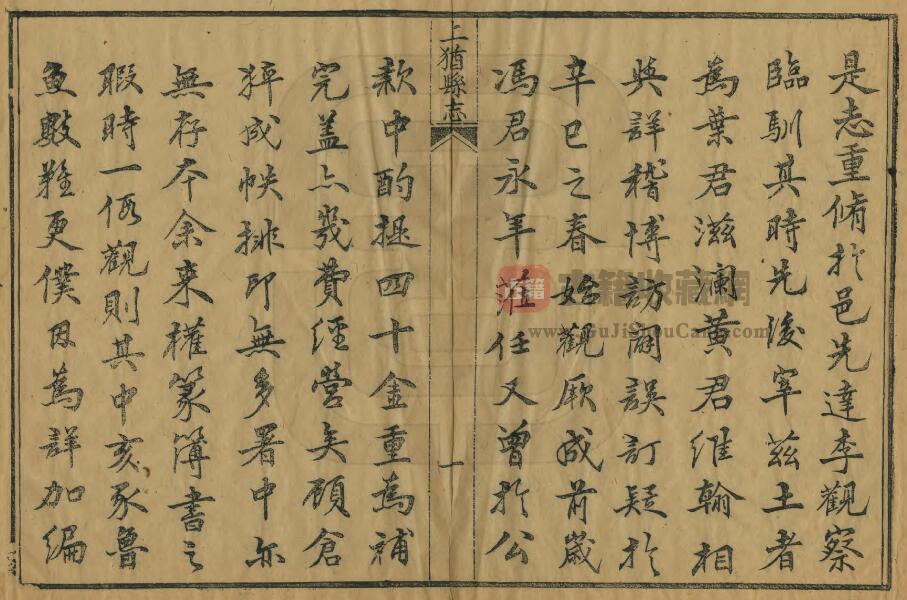 是志重脩於邑先達李觀察
臨馴其時先後宰茲土者
為葉君滋瀾黄君維翰相
與詳稽博訪闕誤訂疑於
辛巳之春始觀厥成前嵗
馮君永年蒞任又曾於公
上猶縣志
一
款中酌提四十金重為補
完盖亦幾費經營矣顧倉
猝成帙排印無多署中亦
無存本余来權篆簿書之
暇時一㑥觀則其中亥豕魯
魚數難更僕因為詳加編
古籍收藏網
www.GuJiShouCang.com